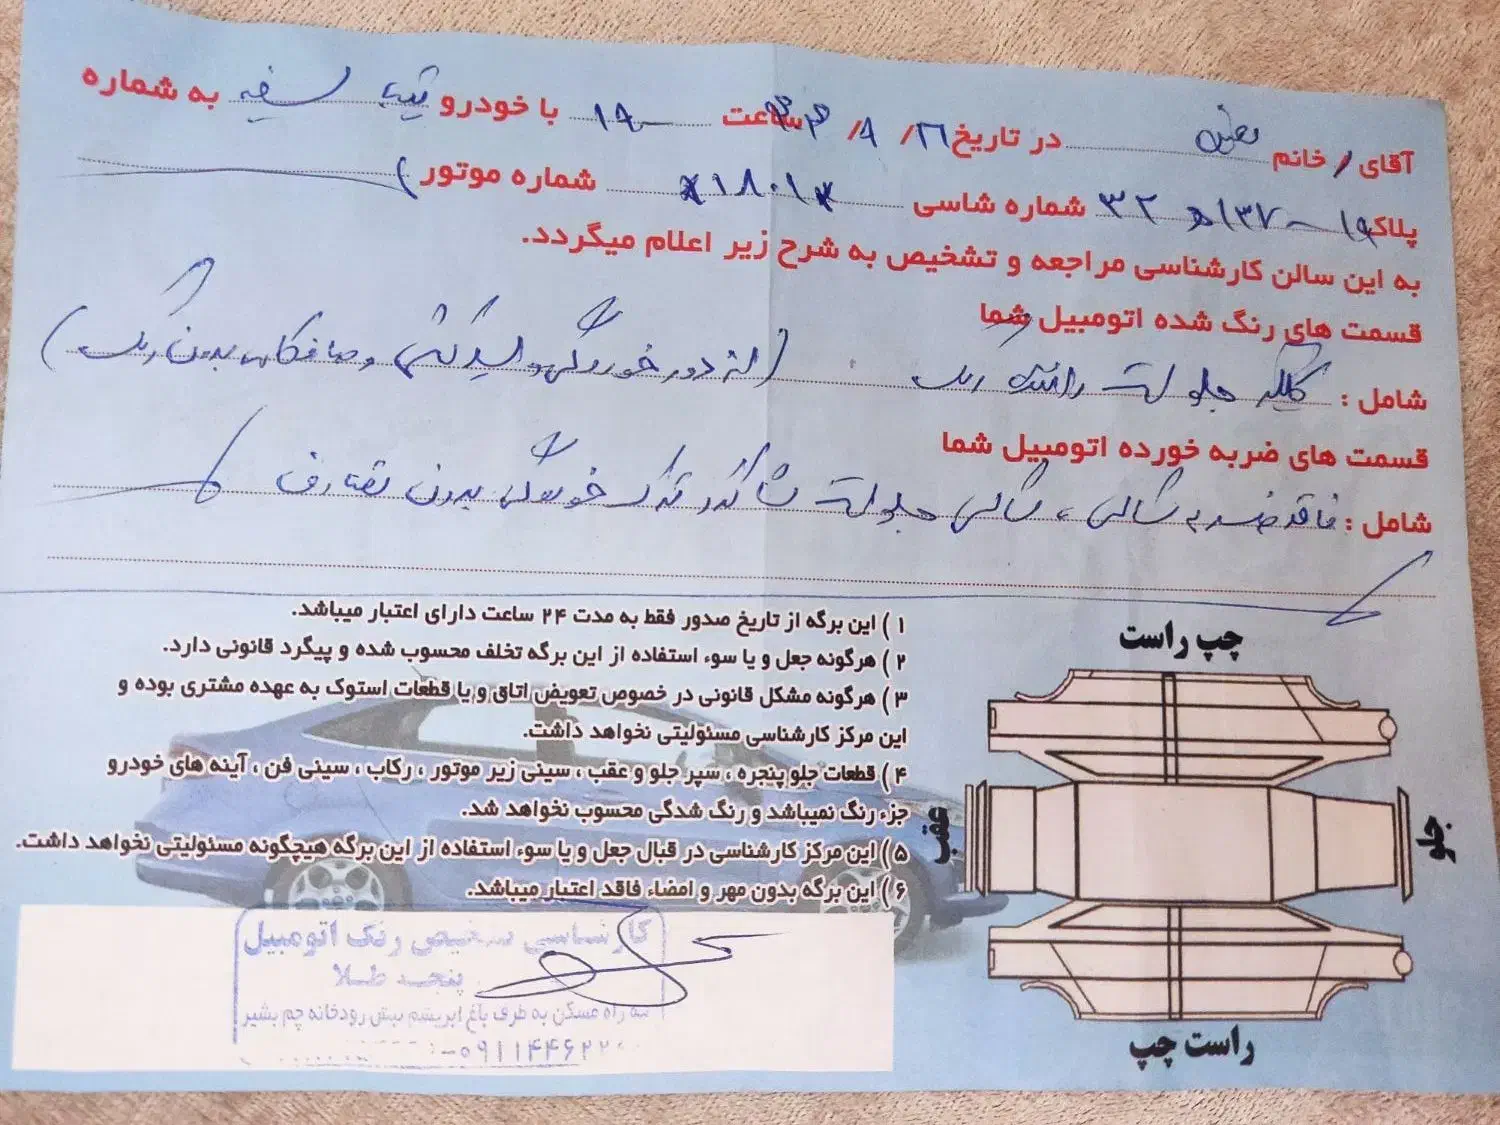 آقای / خانم در تاریخ ۲۶ / ۸ / ساعت ۱۸۰۰ با خودرو تیبا سفید به شماره
پلاک ۳۲ شماره شاسی شماره موتور
به این سالن کارشناسی مراجعه و تشخیص به شرح زیر اعلام میگردد.
قسمت های رنگ شده اتومبیل شما
شامل : گلگیر جلو سمت راننده رنگ ( بدون رنگ )
قسمت های ضربه خورده اتومبیل شما
شامل : فاقد ضربه شاسی ، شاسی جلو سمت شاگرد خوردگی بدون تصادف
۱ ) این برگه از تاریخ صدور فقط به مدت ۲۴ ساعت دارای اعتبار میباشد.
۲ ) هرگونه جعل و یا سوء استفاده از این برگه تخلف محسوب شده و پیگرد قانونی دارد.
۳ ) هرگونه مشکل قانونی در خصوص تعویض اتاق و یا قطعات استوک به عهده مشتری بوده و
این مرکز کارشناسی مسئولیتی نخواهد داشت.
۴ ) قطعات جلو پنجره ، سپر جلو و عقب ، سینی زیر موتور ، رکاب ، سینی فن ، آینه های خودرو
جزء رنگ نمیباشد و رنگ شدگی محسوب نخواهد شد.
۵ ) این مرکز کارشناسی در قبال جعل و یا سوء استفاده از این برگه هیچگونه مسئولیتی نخواهد داشت.
۶ ) این برگه بدون مهر و امضاء فاقد اعتبار میباشد.
چپ راست
عقب
جلو
راست چپ
کارشناسی تشخیص رنگ اتومبیل
پنجه طلا
سه راه مسکن به طرف باغ ابریشم نبش رودخانه چم بشیر